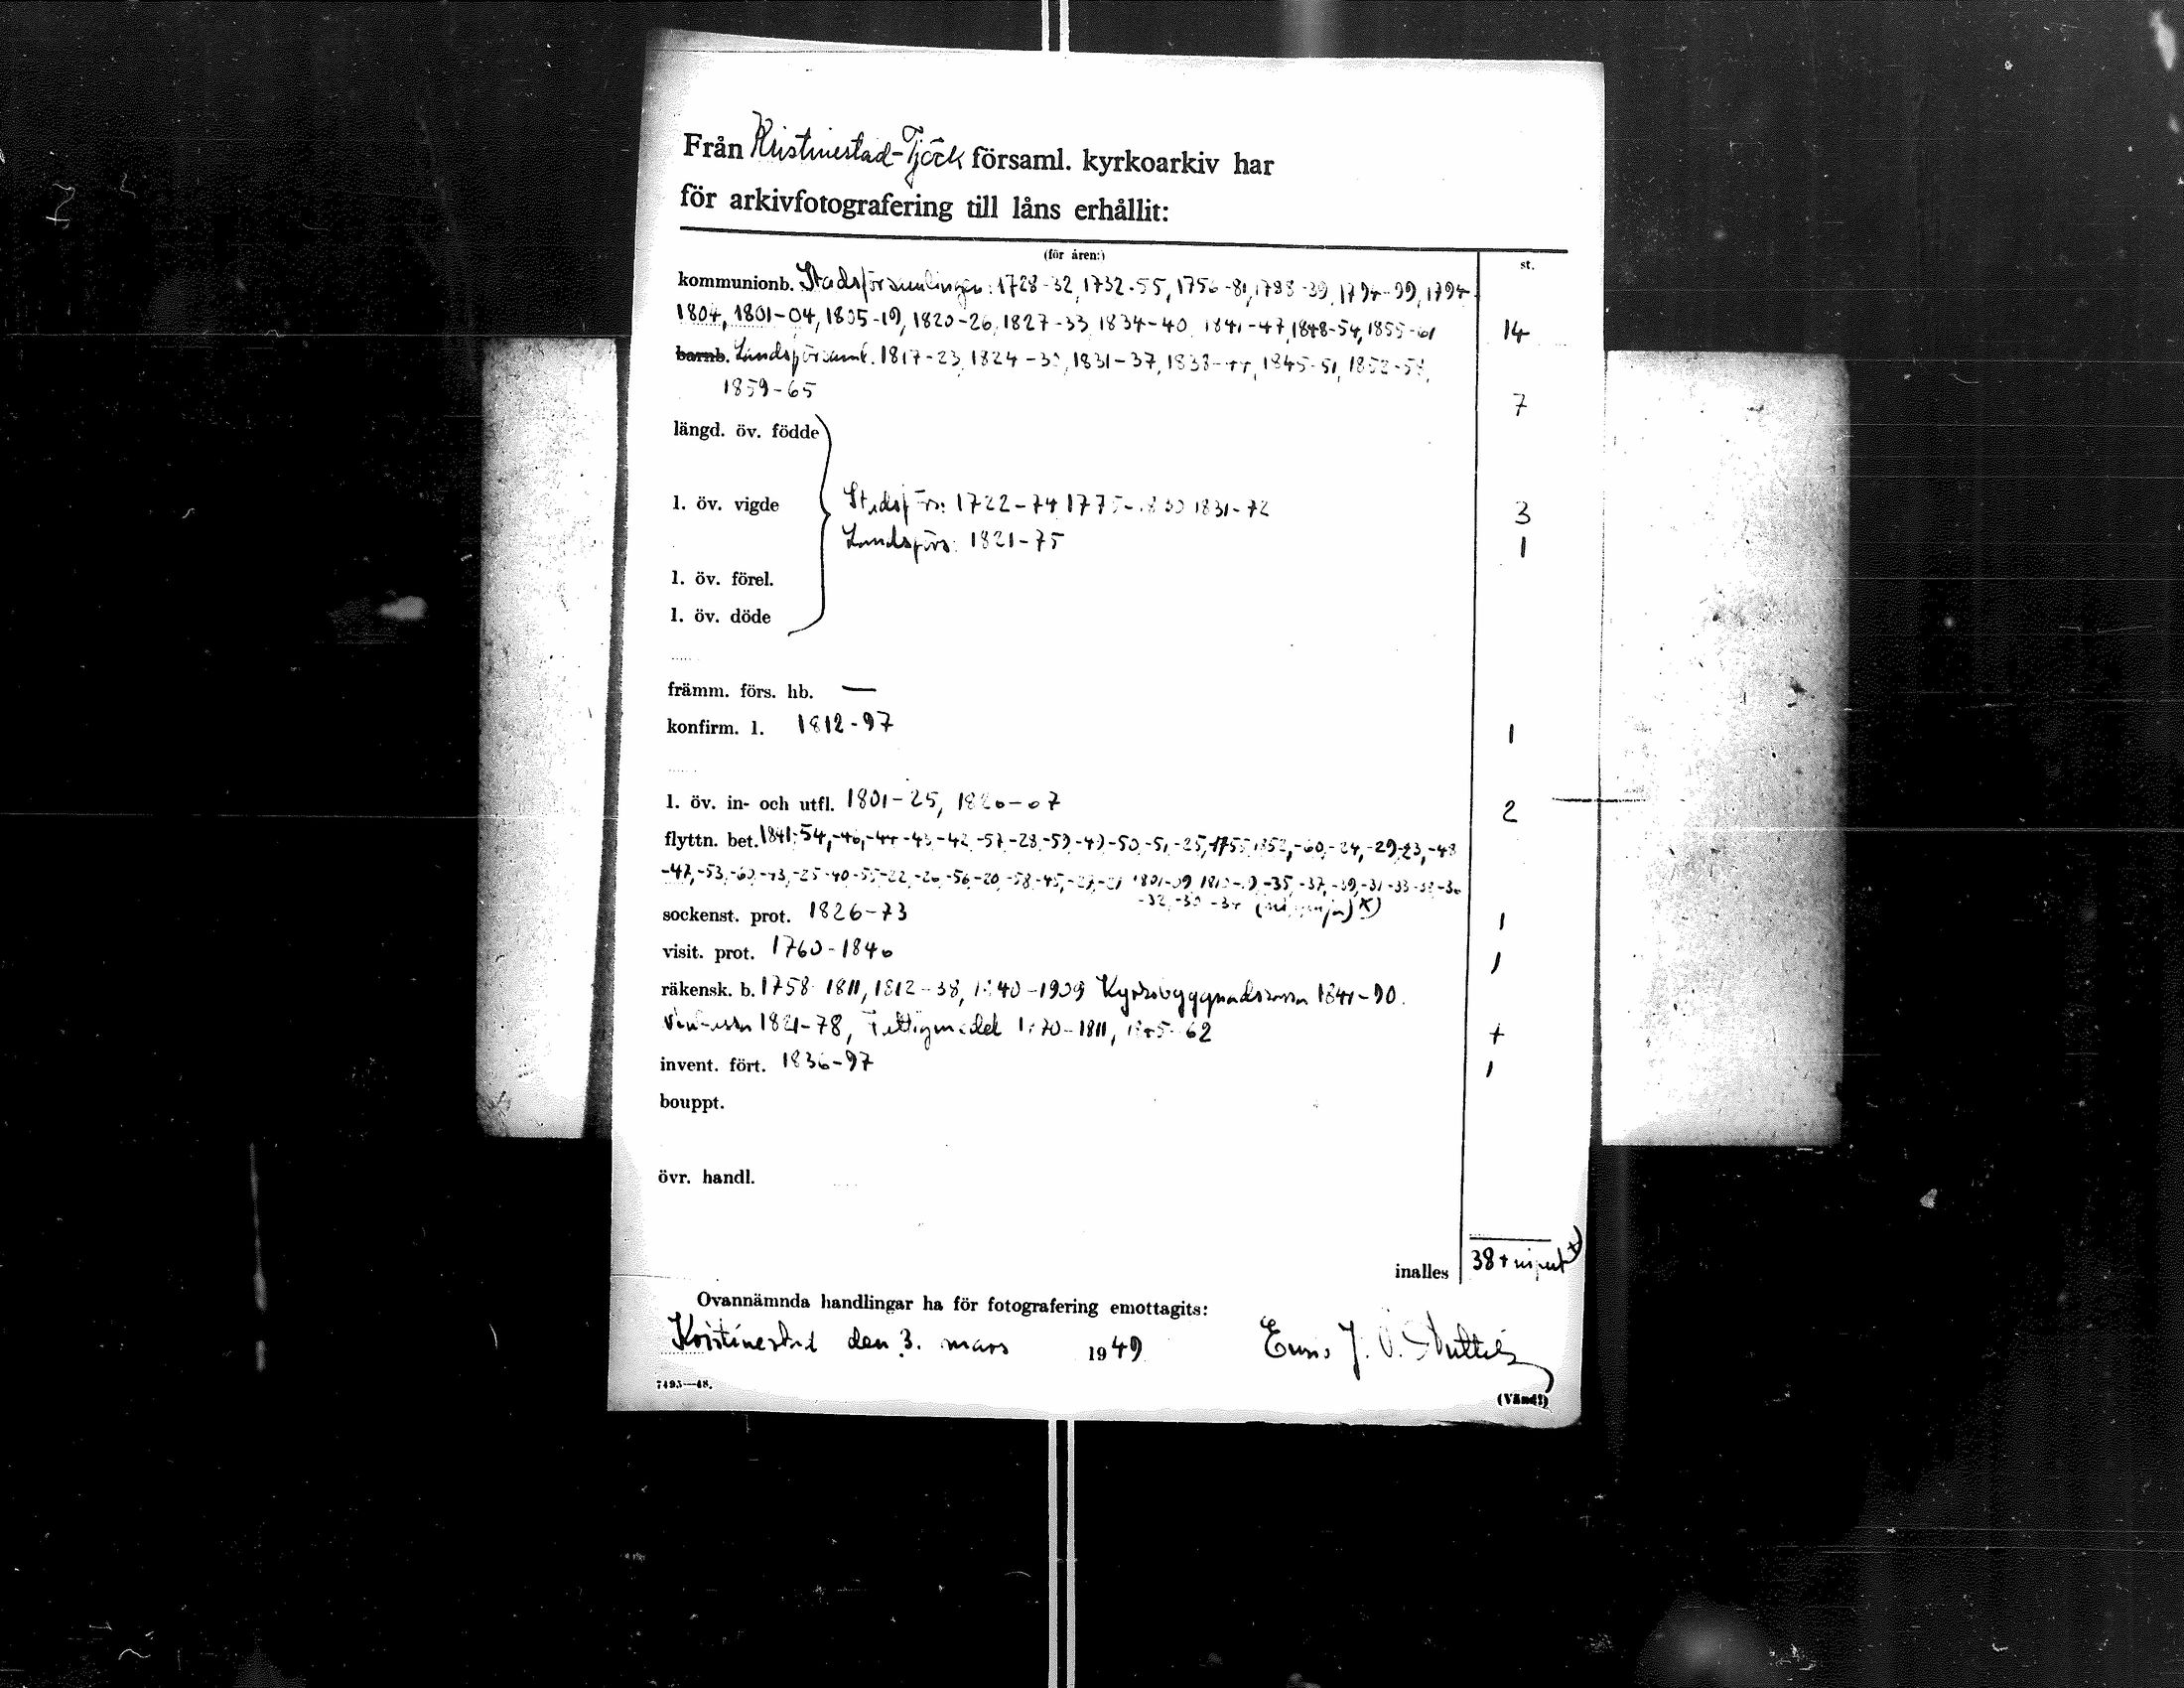 Från Kristinestad-Tjöck församl. kyrkoarkiv har
för arkivfotografering till låns erhållit:
(för åren:)
st.
kommunionb. Stadsförsamlingen: 1728-32, 1732-55, 1756-81, 1788-39, 1794-99, 1794-
1804, 1801-04, 1805-19, 1820-26, 1827-33 1834-40 1841-47, 1848-54, 1855-61 14
barnb. Landsförsaml. 1817-23, 1824-30, 1831-37, 1838-44, 1845-51, 1852-58,
1859-65 7
längd. öv. födde
l. öv. vigde Stadsförs: 1722-74 1775-1830 1831-72 3
Landsförs: 1821-75 1
l. öv. förel.
l. öv. döde
främm. förs. hb. —
konfirm. l. 1812-97 1
l. öv. in- och utfl. 1801-25, 2
flyttn. bet. 1841, -54, -46, -44 -43 -42 -57 -28 -59 -49 -50 -51 -25, 1755 1852, -60, -24, -29, -23, -48
-47, -53, -60, -43, -25 -40 -55 -22, -26, -56 -20, -58 -45, 1801-09, -35, -37, -39, -31 -33 -36
-32, -30 -34
sockenst. prot. 1826-73 1
visit. prot. 1760-1840 1
räkensk. b. 1758 1811, 1812-38, 1840-1909 Kyrkobyggnadskassa 1841-90.
1821-78, Fattigmedel 1811, 62 +
invent. fört. 1836-97 1
bouppt.
övr. handl.
inalles 38 +
Ovannämnda handlingar ha för fotografering emottagits:
Kristinestad den 3. mars 1949
7495—48.
(Vänd!)